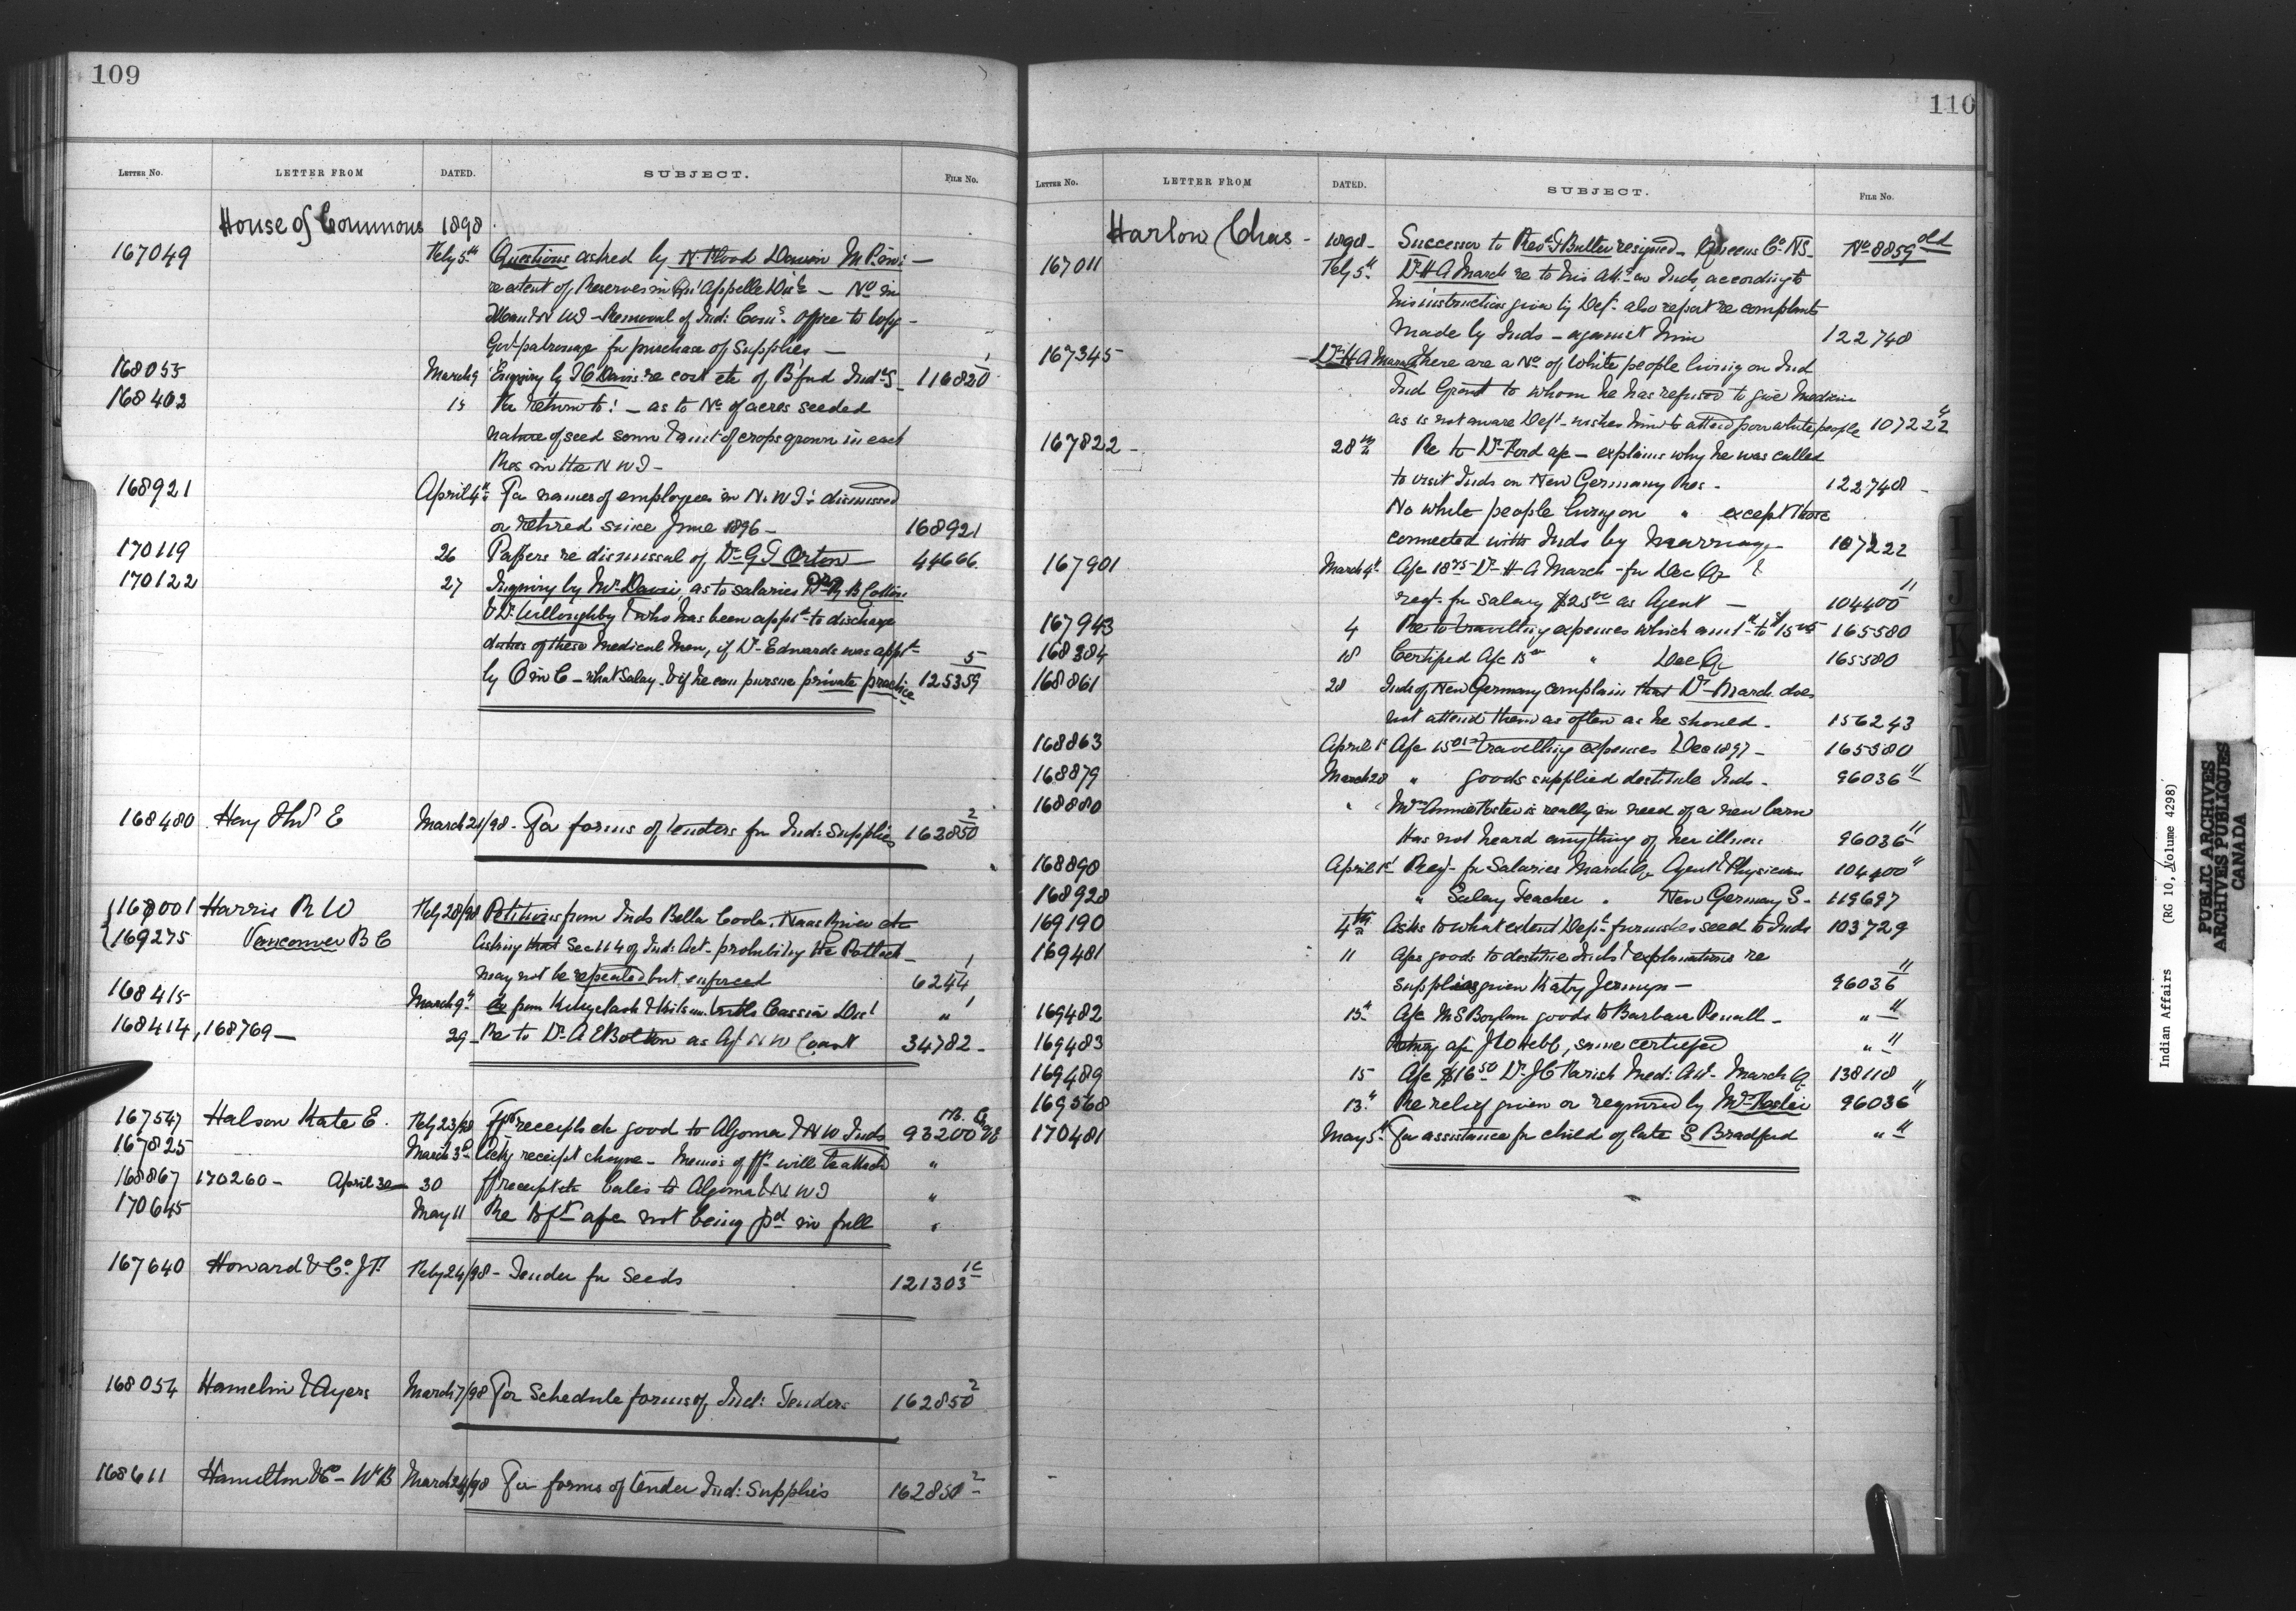 109
LETTER No. LETTER FROM DATED. SUBJECT. FILE No.
House of Commons 1898
167049 Feby 5th Questions asked by N. Flood Davin M.P. con: —
re extent of Reserves in Qu'Appelle Dist — No in
Man & N W T — Removal of Ind: Coms. Office to
Govt patronage for purchase of Supplies —
168055 March 9 Enquiry by Davis re cost etc of B'ford Ind S 116820 1
168402 15 For return to: — as to No of acres seeded
nature of seed sown & amt of crops grown in each
Res in the N W T —
168921 April 4th For names of employees in N.W.T: dismissed
or retired since June 1896 — 168921
170119 26 Papers re dismissal of Dr G T Orton 44666.
170122 27 Inquiry by Mr Davin, as to salaries
& Dr. Willoughby & who has been appt to discharge
duties of these Medical Men, if Dr. Edwards was appt
by O in C — what Salary & if he can pursue private practice 125359 5
168480 Hay E March 21/98 - For forms of tenders for Ind: Supplies 162850 2
168001 Harris R W Feby 28/98 Petitions from Inds Bella Coola, Naas River etc
169275 Vancouver B C Asking that Sec 114 of Ind: Act - prohibiting the Potlach —
may not be repealed but enforced 6244 1
168415 March 9th do from & Cassiar Dist " 1
168414, 168769 — 29 - Re to Dr. A E Bolton as Agt N W Coast 34782 -
167547 Halson Kate E. Feby 23/98 Fft receipts etc good to Algoma & N W Inds 93200
167825 March 3rd Ackg receipt cheque - Memo's of fft will be attached "
168867 170260 - April 30 30 ff receipt etc bales to Algoma & N W T "
170645 May 11 Re fft a/c not being pd in full "
167640 Howard & Co. J F. Feby 24/98 - Tender for Seeds 121303 1c
168054 Hamelin & Ayers March 7/98 For Schedule forms of Ind: Tenders 162850 2
168611 Hamilton & Co - W B March 24/98 For forms of tender Ind: Supplies 162850 2
110
LETTER No. LETTER FROM DATED. SUBJECT. FILE No.
Harlow Chas - 1898 - Successor to Revd T Butler resigned — Queens Co. NS - No 8859 old
167011 Feby 5th Dr H A March re to his att. on Inds, according to
his instructions given by Dept. also report re complaints
made by Inds - against him 122748
167345 - Dr H A March There are a No of White people living on Ind
Ind Grant to whom he has refused to give Medicine
as is not aware Dept - wishes him to attend poor white people 107222
167822 - 28th Re to Dr Ford a/c - explains why he was called
to visit Inds on New Germany Res - 122748 -
No white people living on " except those
connected with Inds by Marriage 107222
167901 March 4th A/c 1875 Dr - H A March - for Dec Qr &
reqt. for salary $25 00 as Agent — 104400 11
167943 4 Re to travelling expenses which amt to $15 165580
168384 18 Certified A/c 15 " Dec Qr 165580
168861 28 Inds of New Germany complain that Dr - March does
not attend them as often as he should - 156243
168863 April 1st A/c 15 travelling expenses Dec 1897 - 165580
168879 March 28 " goods supplied destitute Inds - 96036 11
168880 " " Mrs Annie is really in need of a new barn
Has not heard anything of her illness 96036 11
168890 April 1st Req - for Salaries March Qr Agent & Physician 104400 11
168928 " Salary Teacher . New Germany S - 119697
169190 4th Asks to what extent Dept. furnishes seed to Inds 103729
169481 11 A/cs goods to destitute Inds & explanations re
supplies given Katy Jermyn — 96036 11
169482 13th A/c M S Boylan goods to Barbara Penall - " 11
169483 Retng a/c, same certified " 11
169489 15 A/c $16 50 Dr. J C Parish Med: Att - March Q. 138118
169568 13th Re relief given or required by Mrs 96036 11
170481 May 5th For assistance for child of late S Bradford " 11
Indian Affairs (RG 10, Volume 4298)
PUBLIC ARCHIVES
ARCHIVES PUBLIQUES
CANADA